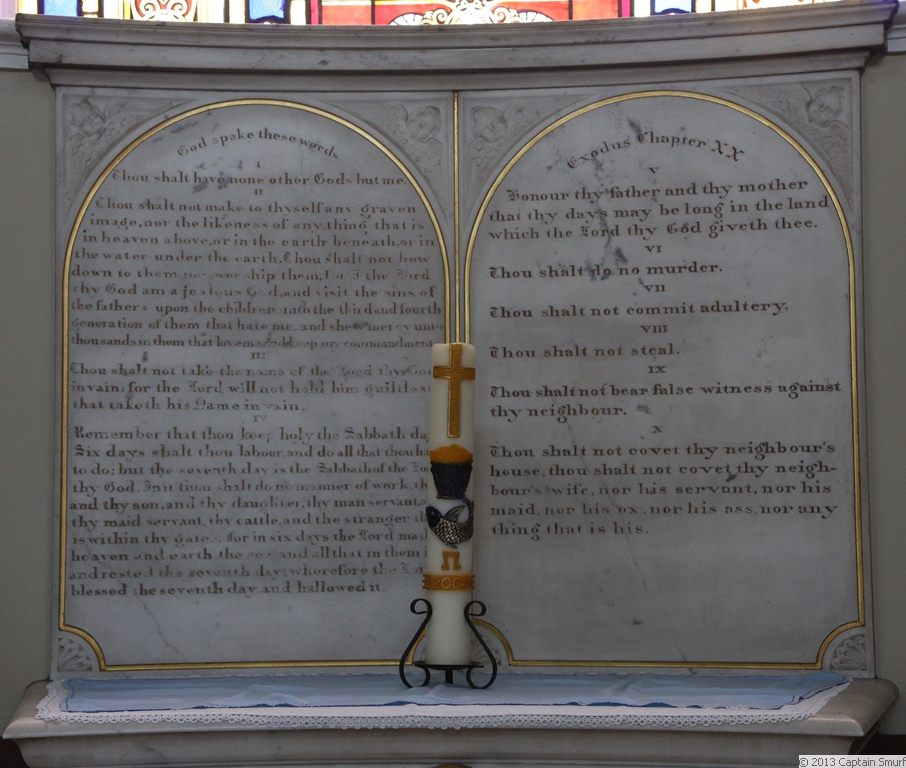 God spake these words.
I
Thou shalt have none other Gods but me.
II
Thou shalt not make to thyself any graven
image, nor the likeness of any thing that is
in heaven above, or in the earth beneath, or in
the water under the earth. Thou shalt not bow
down to them nor worship them, for I the Lord
thy God am a jealous God, and visit the sins of
the fathers upon the children unto the third and fourth
generation of them that hate me, and shew mercy unto
thousands in them that love me, and keep my commandments
III
Thou shalt not take the name of the Lord thy God
in vain, for the Lord will not hold him guiltless
that taketh his Name in vain.
IV
Remember that thou keep holy the Sabbath day
Six days shalt thou labour, and do all that thou ha
to do; but the seventh day is the Sabbath of the Lor
thy God. In it thou shalt do no manner of work, th
and thy son, and thy daughter, thy man servant, a
thy maid servant, thy cattle, and the stranger th
is within thy gates, for in six days the Lord mad
heaven and earth the sea and all that in them i
and rested the seventh day; wherefore the Lo
blessed the seventh day, and hallowed it.
Exodus Chapter XX
V
Honour thy father and thy mother
that thy days may be long in the land
which the Lord thy God giveth thee.
VI
Thou shalt do no murder.
VII
Thou shalt not commit adultery.
VIII
Thou shalt not steal.
IX
Thou shalt not bear false witness against
thy neighbour.
X
Thou shalt not covet thy neighbour's
house, thou shalt not covet thy neigh-
bour's wife, nor his servant, nor his
maid, nor his ox, nor his ass, nor any
thing that is his.
Ω
© 2013 Captain Smurf